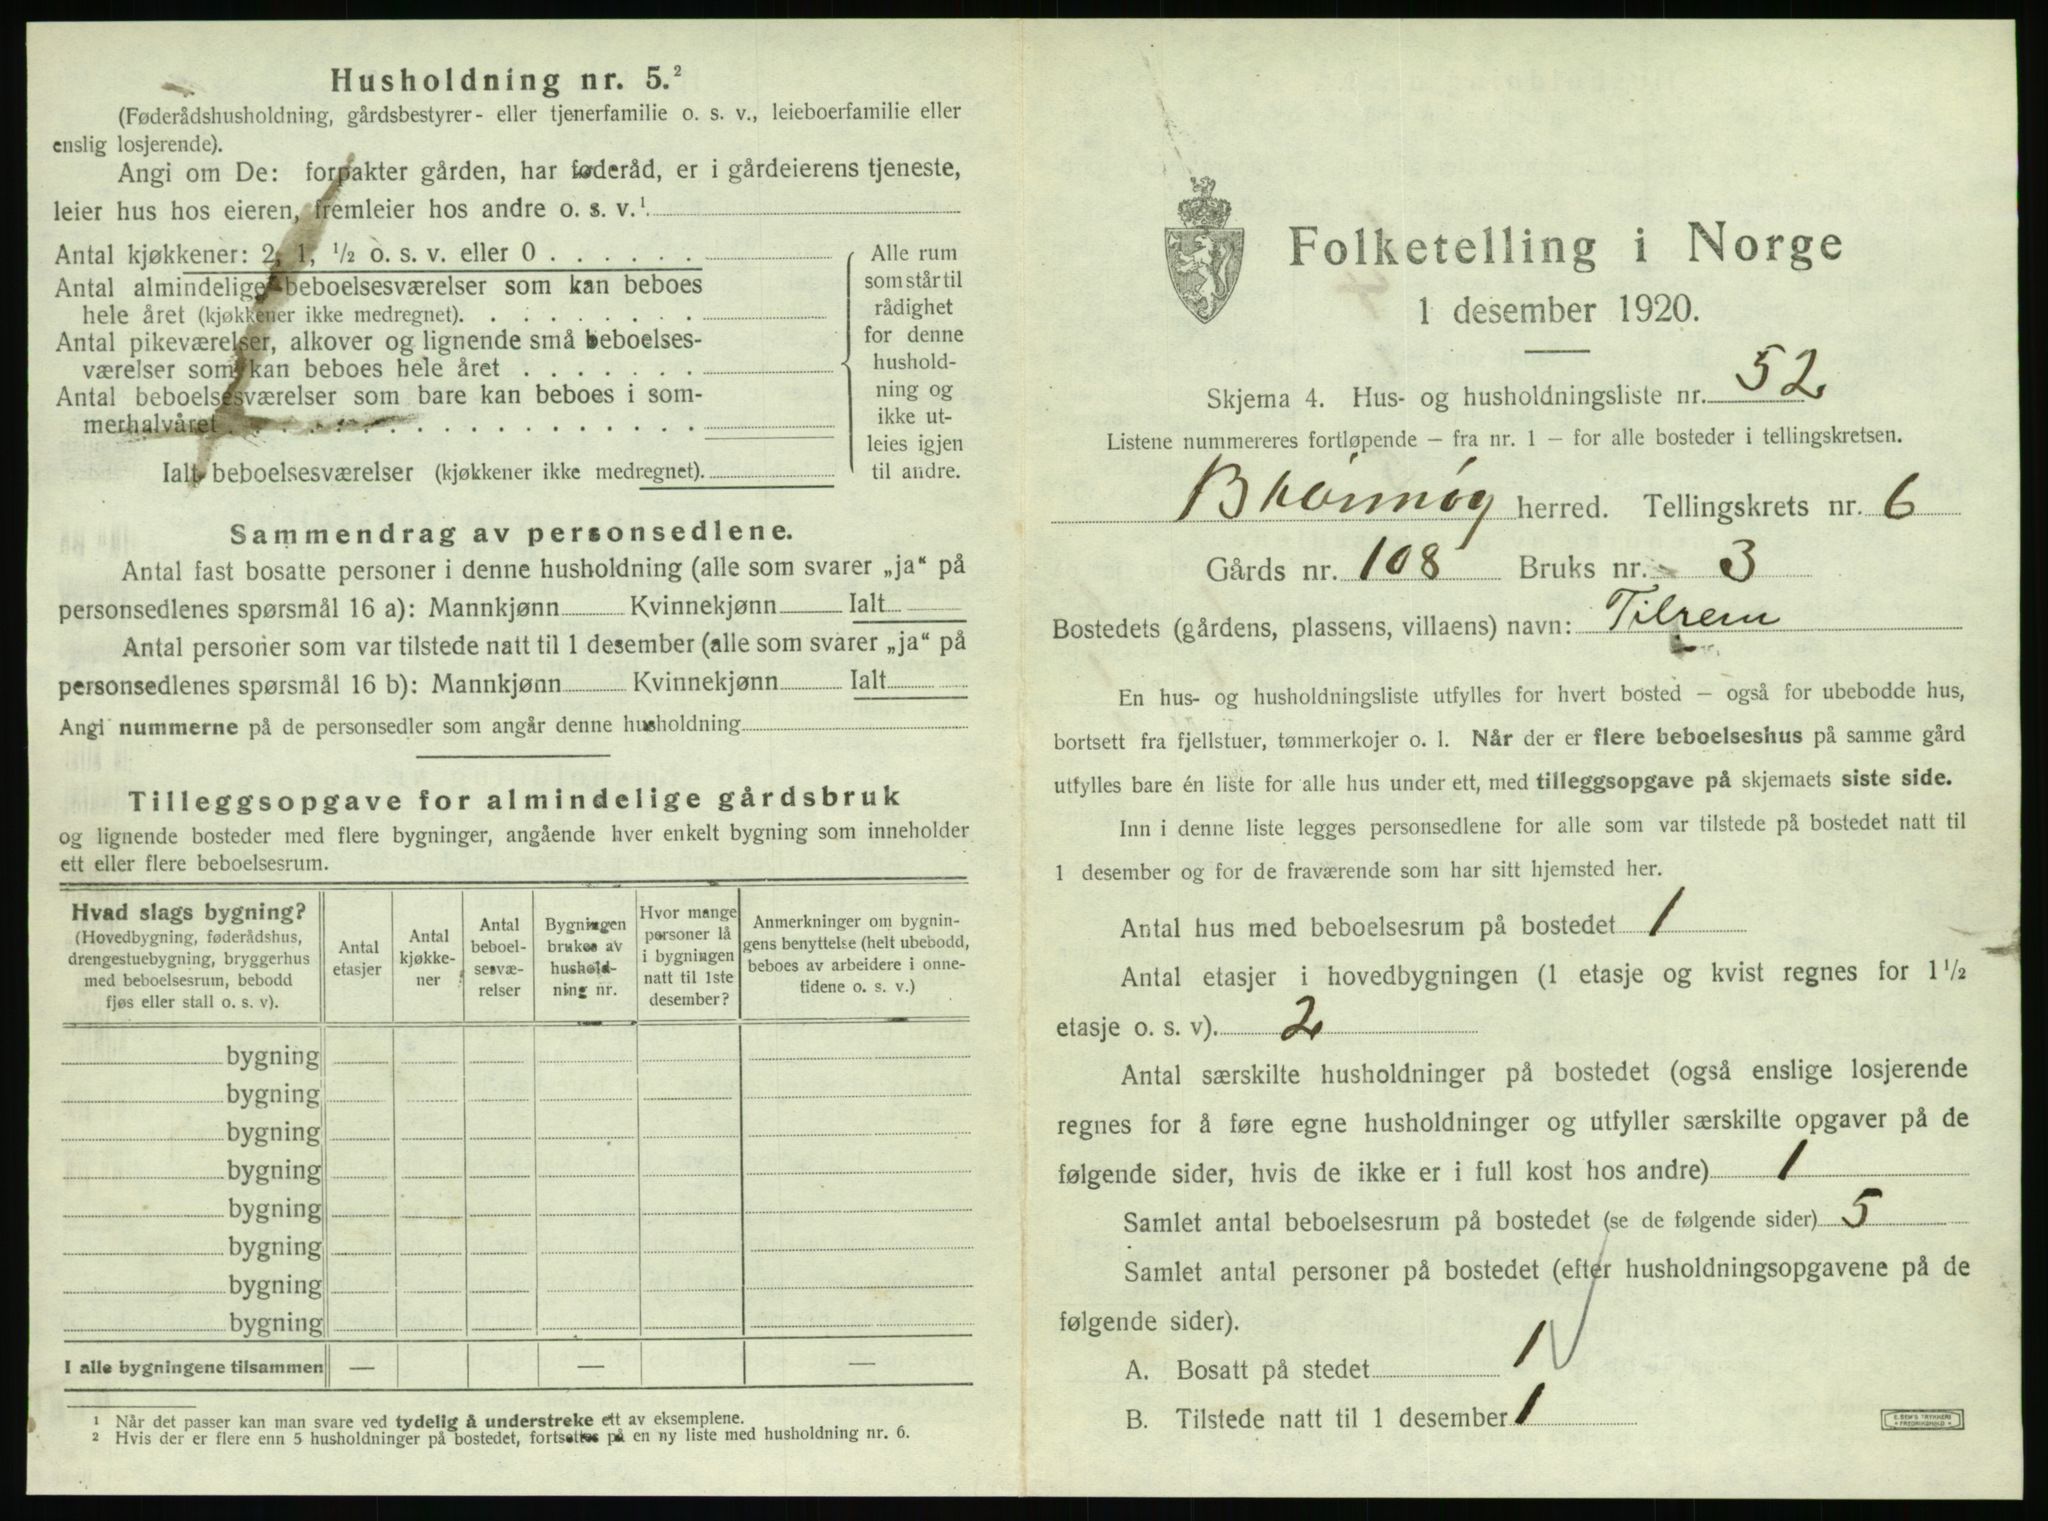 Husholdning nr. 5.²
(Føderådshusholdning, gårdsbestyrer- eller tjenerfamilie o. s. v., leieboerfamilie eller
enslig losjerende).
Angi om De: forpakter gården, har føderåd, er i gårdeierens tjeneste,
leier hus hos eieren, fremleier hos andre o. s. v.¹
Antal kjøkkener: 2, 1, ½ o. s. v. eller 0 . . . . . .
Antal almindelige beboelsesværelser som kan beboes
hele året (kjøkkener ikke medregnet). . . . . . . . .
Antal pikeværelser, alkover og lignende små beboelses-
værelser som kan beboes hele året . . . . . . .
Antal beboelsesværelser som bare kan beboes i som-
merhalvåret . . . . . . . . . . . . . . . . . .
Ialt beboelsesværelser (kjøkkener ikke medregnet).
Alle rum
som står til
rådighet
for denne
hushold-
ning og
ikke ut-
leies igjen
til andre.
Sammendrag av personsedlene.
Antal fast bosatte personer i denne husholdning (alle som svarer „ja“ på
personsedlenes spørsmål 16 a): Mannkjønn Kvinnekjønn Ialt
Antal personer som var tilstede natt til 1 desember (alle som svarer „ja“ på
personsedlenes spørsmål 16 b): Mannkjønn Kvinnekjønn Ialt
Angi nummerne på de personsedler som angår denne husholdning
Tilleggsopgave for almindelige gårdsbruk
og lignende bosteder med flere bygninger, angående hver enkelt bygning som inneholder
ett eller flere beboelsesrum.
Hvad slags bygning?
(Hovedbygning, føderådshus,
drengestuebygning, bryggerhus
med beboelsesrum, bebodd
fjøs eller stall o. s. v).
Antal
etasjer
Antal
kjøkke-
ner
Antal
beboel-
sesvæ-
relser
Bygningen
brukes av
hushold-
ning nr.
Hvor mange
personer lå
i bygningen
natt til 1ste
desember?
Anmerkninger om bygnin-
gens benyttelse (helt ubebodd,
beboes av arbeidere i onne-
tidene o. s. v.)
bygning
bygning
bygning
bygning
bygning
bygning
bygning
bygning
I alle bygningene tilsammen — — —
¹ Når det passer kan man svare ved tydelig å understreke ett av eksemplene.
² Hvis der er flere enn 5 husholdninger på bostedet, fortsettes på en ny liste med husholdning nr. 6.
Folketelling i Norge
1 desember 1920.
Skjema 4. Hus- og husholdningsliste nr. 52
Listene nummereres fortløpende – fra nr. 1 – for alle bosteder i tellingskretsen.
herred. Tellingskrets nr. 6
Gårds nr. 108 Bruks nr. 3
Bostedets (gårdens, plassens, villaens) navn: Tilrem
En hus- og husholdningsliste utfylles for hvert bosted – også for ubebodde hus,
bortsett fra fjellstuer, tømmerkojer o. l. Når der er flere beboelseshus på samme gård
utfylles bare én liste for alle hus under ett, med tilleggsopgave på skjemaets siste side.
Inn i denne liste legges personsedlene for alle som var tilstede på bostedet natt til
1 desember og for de fraværende som har sitt hjemsted her.
Antal hus med beboelsesrum på bostedet 1
Antal etasjer i hovedbygningen (1 etasje og kvist regnes for 1½
etasje o. s. v). 2
Antal særskilte husholdninger på bostedet (også enslige losjerende
regnes for å føre egne husholdninger og utfyller særskilte opgaver på de
følgende sider, hvis de ikke er i full kost hos andre) 1
Samlet antal beboelsesrum på bostedet (se de følgende sider) 5
Samlet antal personer på bostedet (efter husholdningsopgavene på de
følgende sider).
A. Bosatt på stedet 1
B. Tilstede natt til 1 desember 1
E. SEM'S TRYKKERI
FREDRIKSHALD